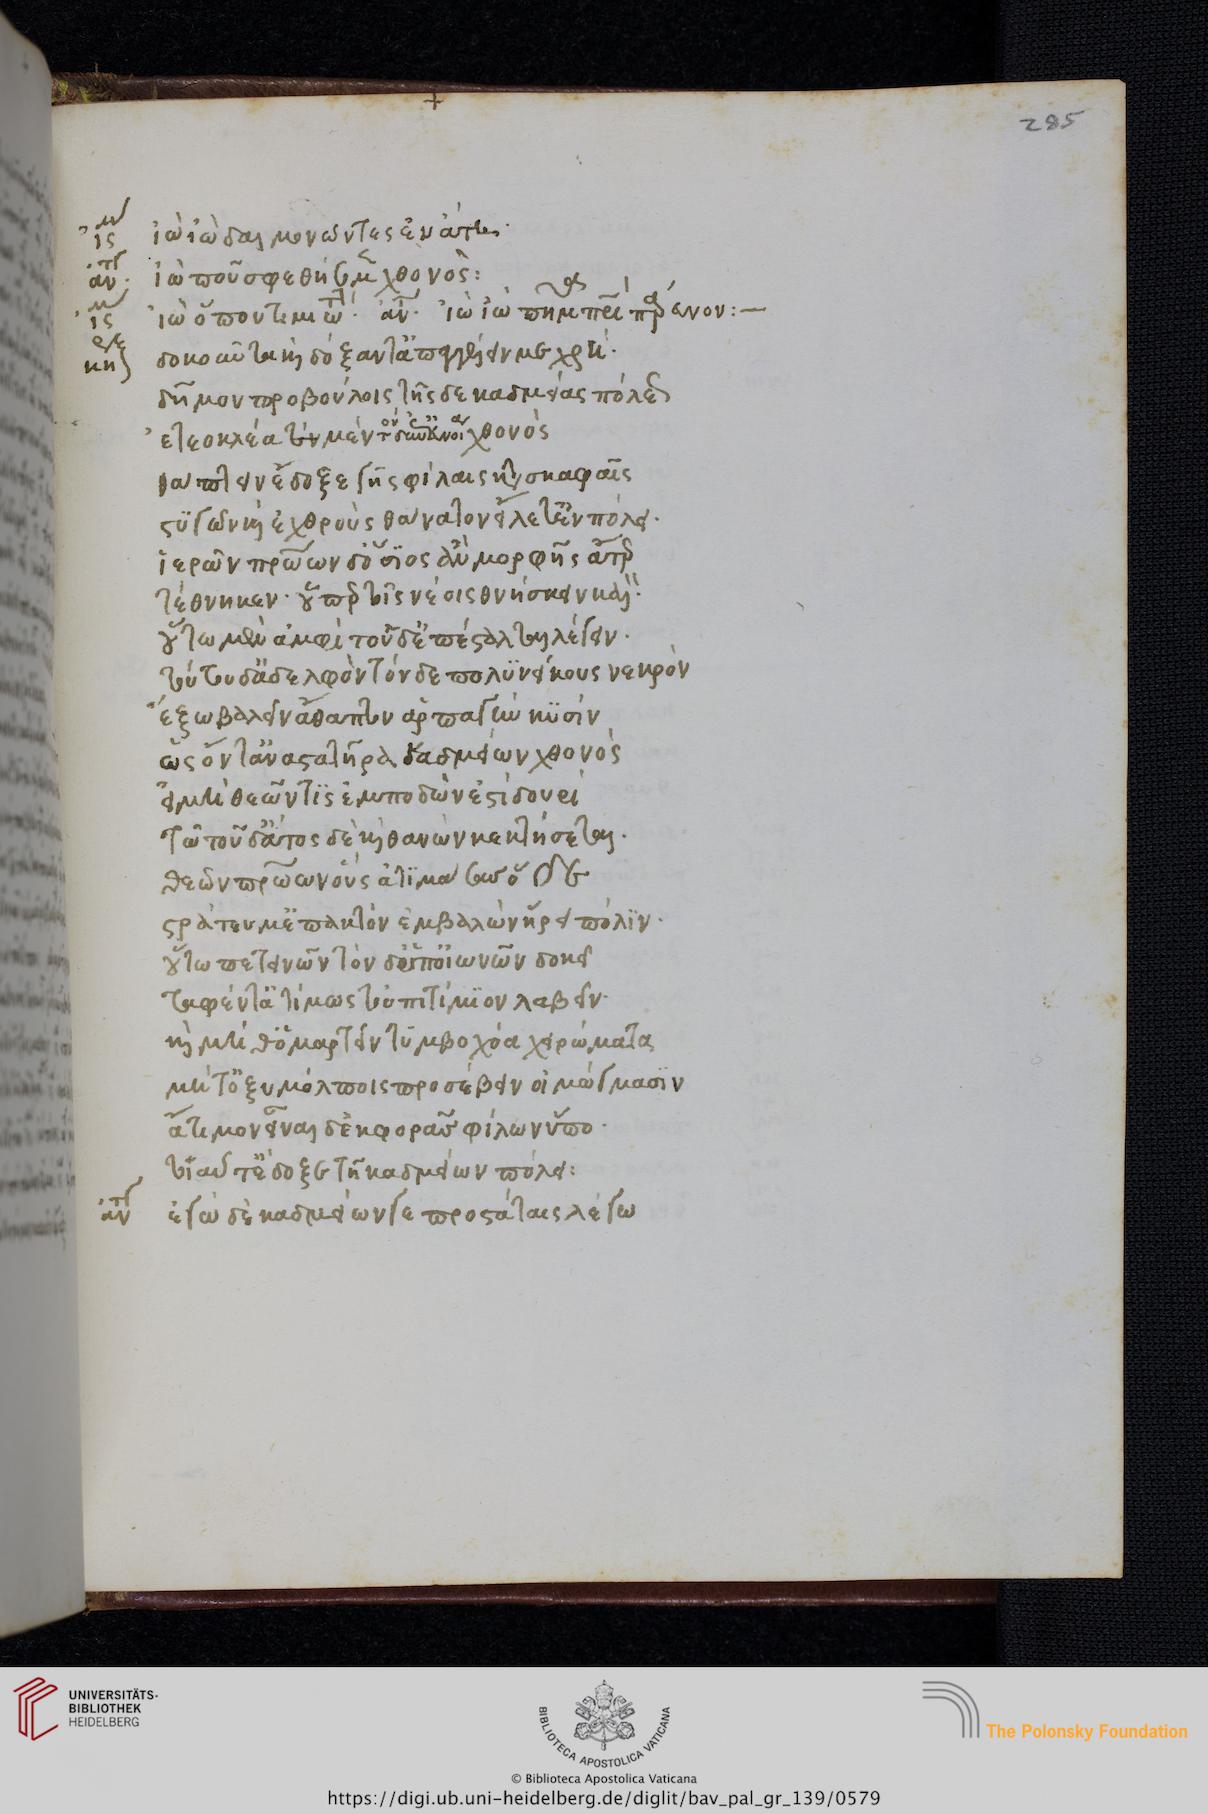 285
ἰὼ ἰὼ δαιμονῶντες ἐν ἄτᾳ.
ἰὼ ποῦ σφε θήσομεν χθονός:
ἰὼ ὅπου τιμιώτατον. ἀν. ἰὼ ἰὼ πῆμα πατρὶ πάρευνον:—
δοκοῦντα καὶ δόξαντ᾽ ἀπαγγέλλειν με χρή.
δήμου προβούλοις τῆσδε καδμείας πόλεως
ἐτεοκλέα τὸν μὲν χθονός
θάπτειν ἔδοξε γῆς φίλαις κατασκαφαῖς
στυγῶν καὶ ἐχθροὺς θάνατον εἵλετ᾽ ἐν πόλει.
ἱερῶν πατρώων δ᾽ ὅσιος ὢν μομφῆς ἄτερ
τέθνηκεν. οὗπερ τοῖς νέοις θνήσκειν καλόν.
οὕτω μὲν ἀμφὶ τοῦδ᾽ ἐπέσταλται λέγειν.
τούτου δ᾽ ἀδελφὸν τόνδε πολυνείκους νεκρὸν
ἔξω βαλεῖν ἄθαπτον ἁρπαγὴν κυσίν
ὡς ὄντ᾽ ἀναστατῆρα καδμείων χθονός
εἰ μὴ θεῶν τις ἐμποδὼν ἔστη δορεί
τῶ τοῦδ᾽ ἄγος δὲ καὶ θανὼν κεκτήσεται.
θεῶν πατρώων οὓς ἀτιμάσας ὅδε
στράτευμ᾽ ἐπακτὸν ἐμβαλὼν ᾕρει πόλιν.
οὕτω πετεινῶν τόνδ᾽ ὑπ᾽ οἰωνῶν δοκεῖ
ταφέντ᾽ ἀτίμως τοὐπιτίμιον λαβεῖν.
καὶ μήθ᾽ ὁμαρτεῖν τυμβοχόα χειρώματα
μήτ᾽ ὀξυμόλποις προσέβειν οἰμώγμασιν
ἄτιμον εἶναι δ᾽ ἐκφορᾶς φίλων ὕπο.
τοιαῦτ᾽ ἔδοξε τῇ καδμείων πόλει:
ἐγὼ δὲ καδμείων γε προστάταις λέγω
UNIVERSITÄTS-
BIBLIOTHEK
HEIDELBERG
BIBLIOTECA APOSTOLICA VATICANA
© Biblioteca Apostolica Vaticana
The Polonsky Foundation
https://digi.ub.uni-heidelberg.de/diglit/bav_pal_gr_139/0579